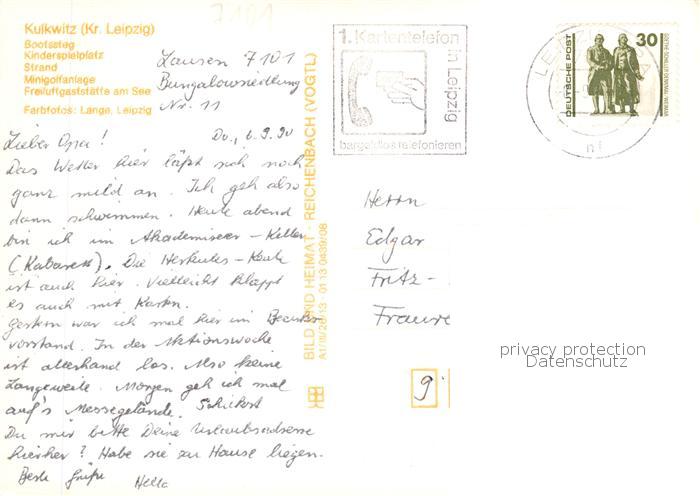 7101
Kulkwitz (Kr. Leipzig)
Bootssteg
Kinderspielplatz
Strand
Minigolfanlage
Freiluftgaststätte am See
Farbfotos: Lange, Leipzig
Lausen 7101
Bungalowsiedlung
Nr. 11
Do., 6.9.90
Lieber Opa!
Das Wetter hier läßt sich noch
ganz mild an. Ich geh also
dann schwimmen. Heute abend
bin ich im Akademixer-Keller
(Kabarett). Die Herkules-Keule
ist auch hier. Vielleicht klappt
es auch mit Karten.
Gestern war ich mal hier im Bezirks-
vorstand. In der Aktionswoche
ist allerhand los. Also keine
Langeweile. Morgen geh ich mal
auf's Messegelände. Schickst
Du mir bitte Deine Urlaubsadresse
hierher? Habe sie zu Hause liegen.
Beste Grüße Hella
BILD UND HEIMAT · REICHENBACH (VOGTL)
A1/III/26/13 01 13 0439/08
1. Kartentelefon
in Leipzig
bargeldlos telefonieren
LEIPZIG
DEUTSCHE POST
30
GOETHE-SCHILLER-DENKMAL WEIMAR
Herrn
Edgar
Fritz-
9
privacy protection
Datenschutz